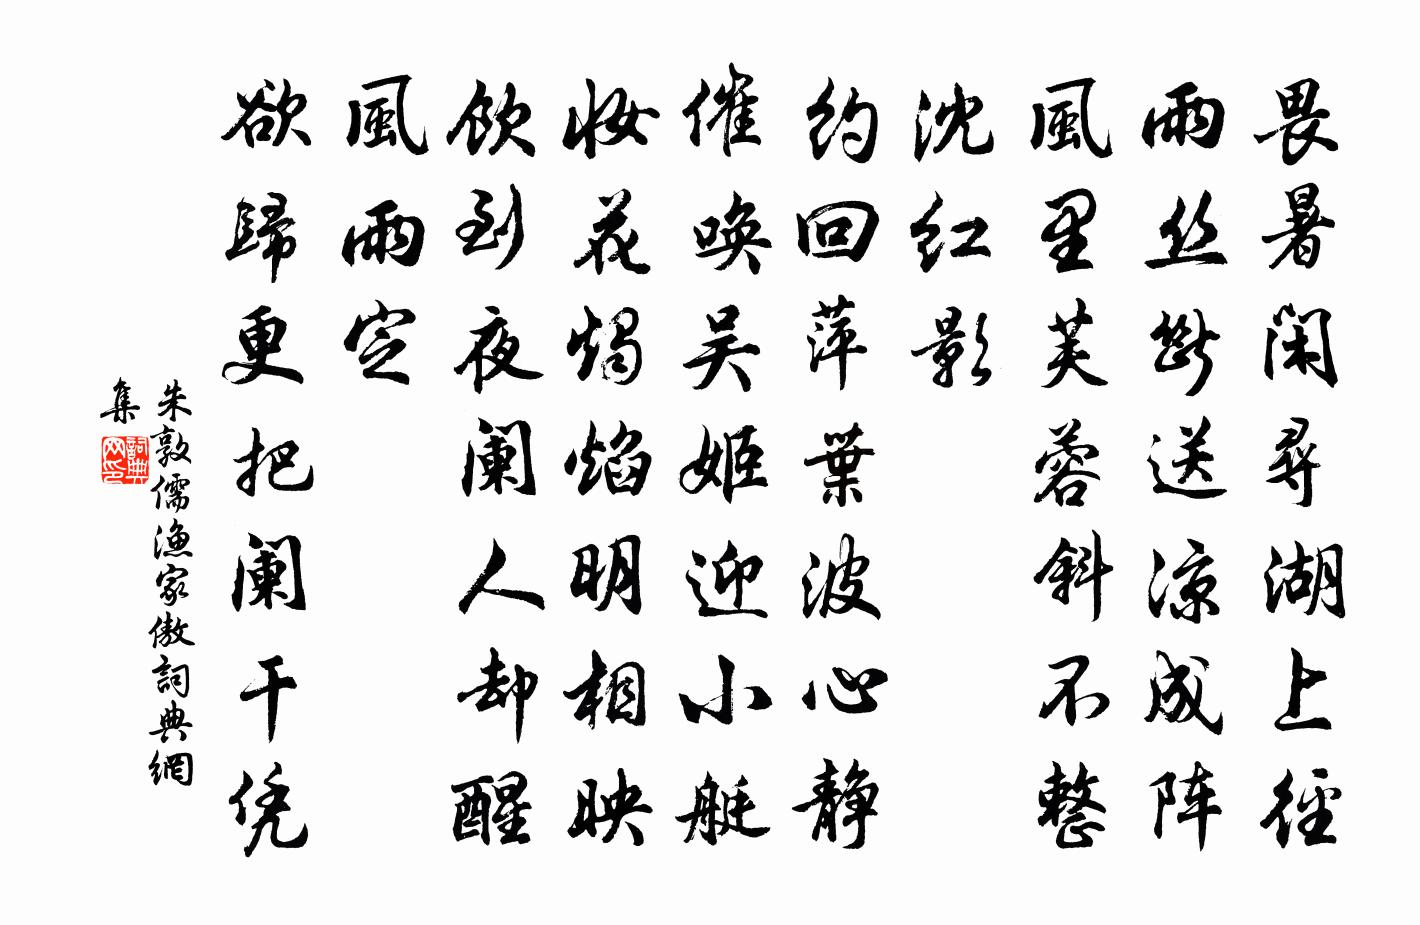 畏暑闲尋湖上径
雨丝斷送涼成阵
風里芙蓉斜不整
沈红影
约回萍葉波心静
催唤吴姬迎小艇
妆花燭焰明相映
飲到夜阑人却醒
風雨定
欲歸更把阑干凭
朱敦儒渔家傲詞典網
集
詞典网印